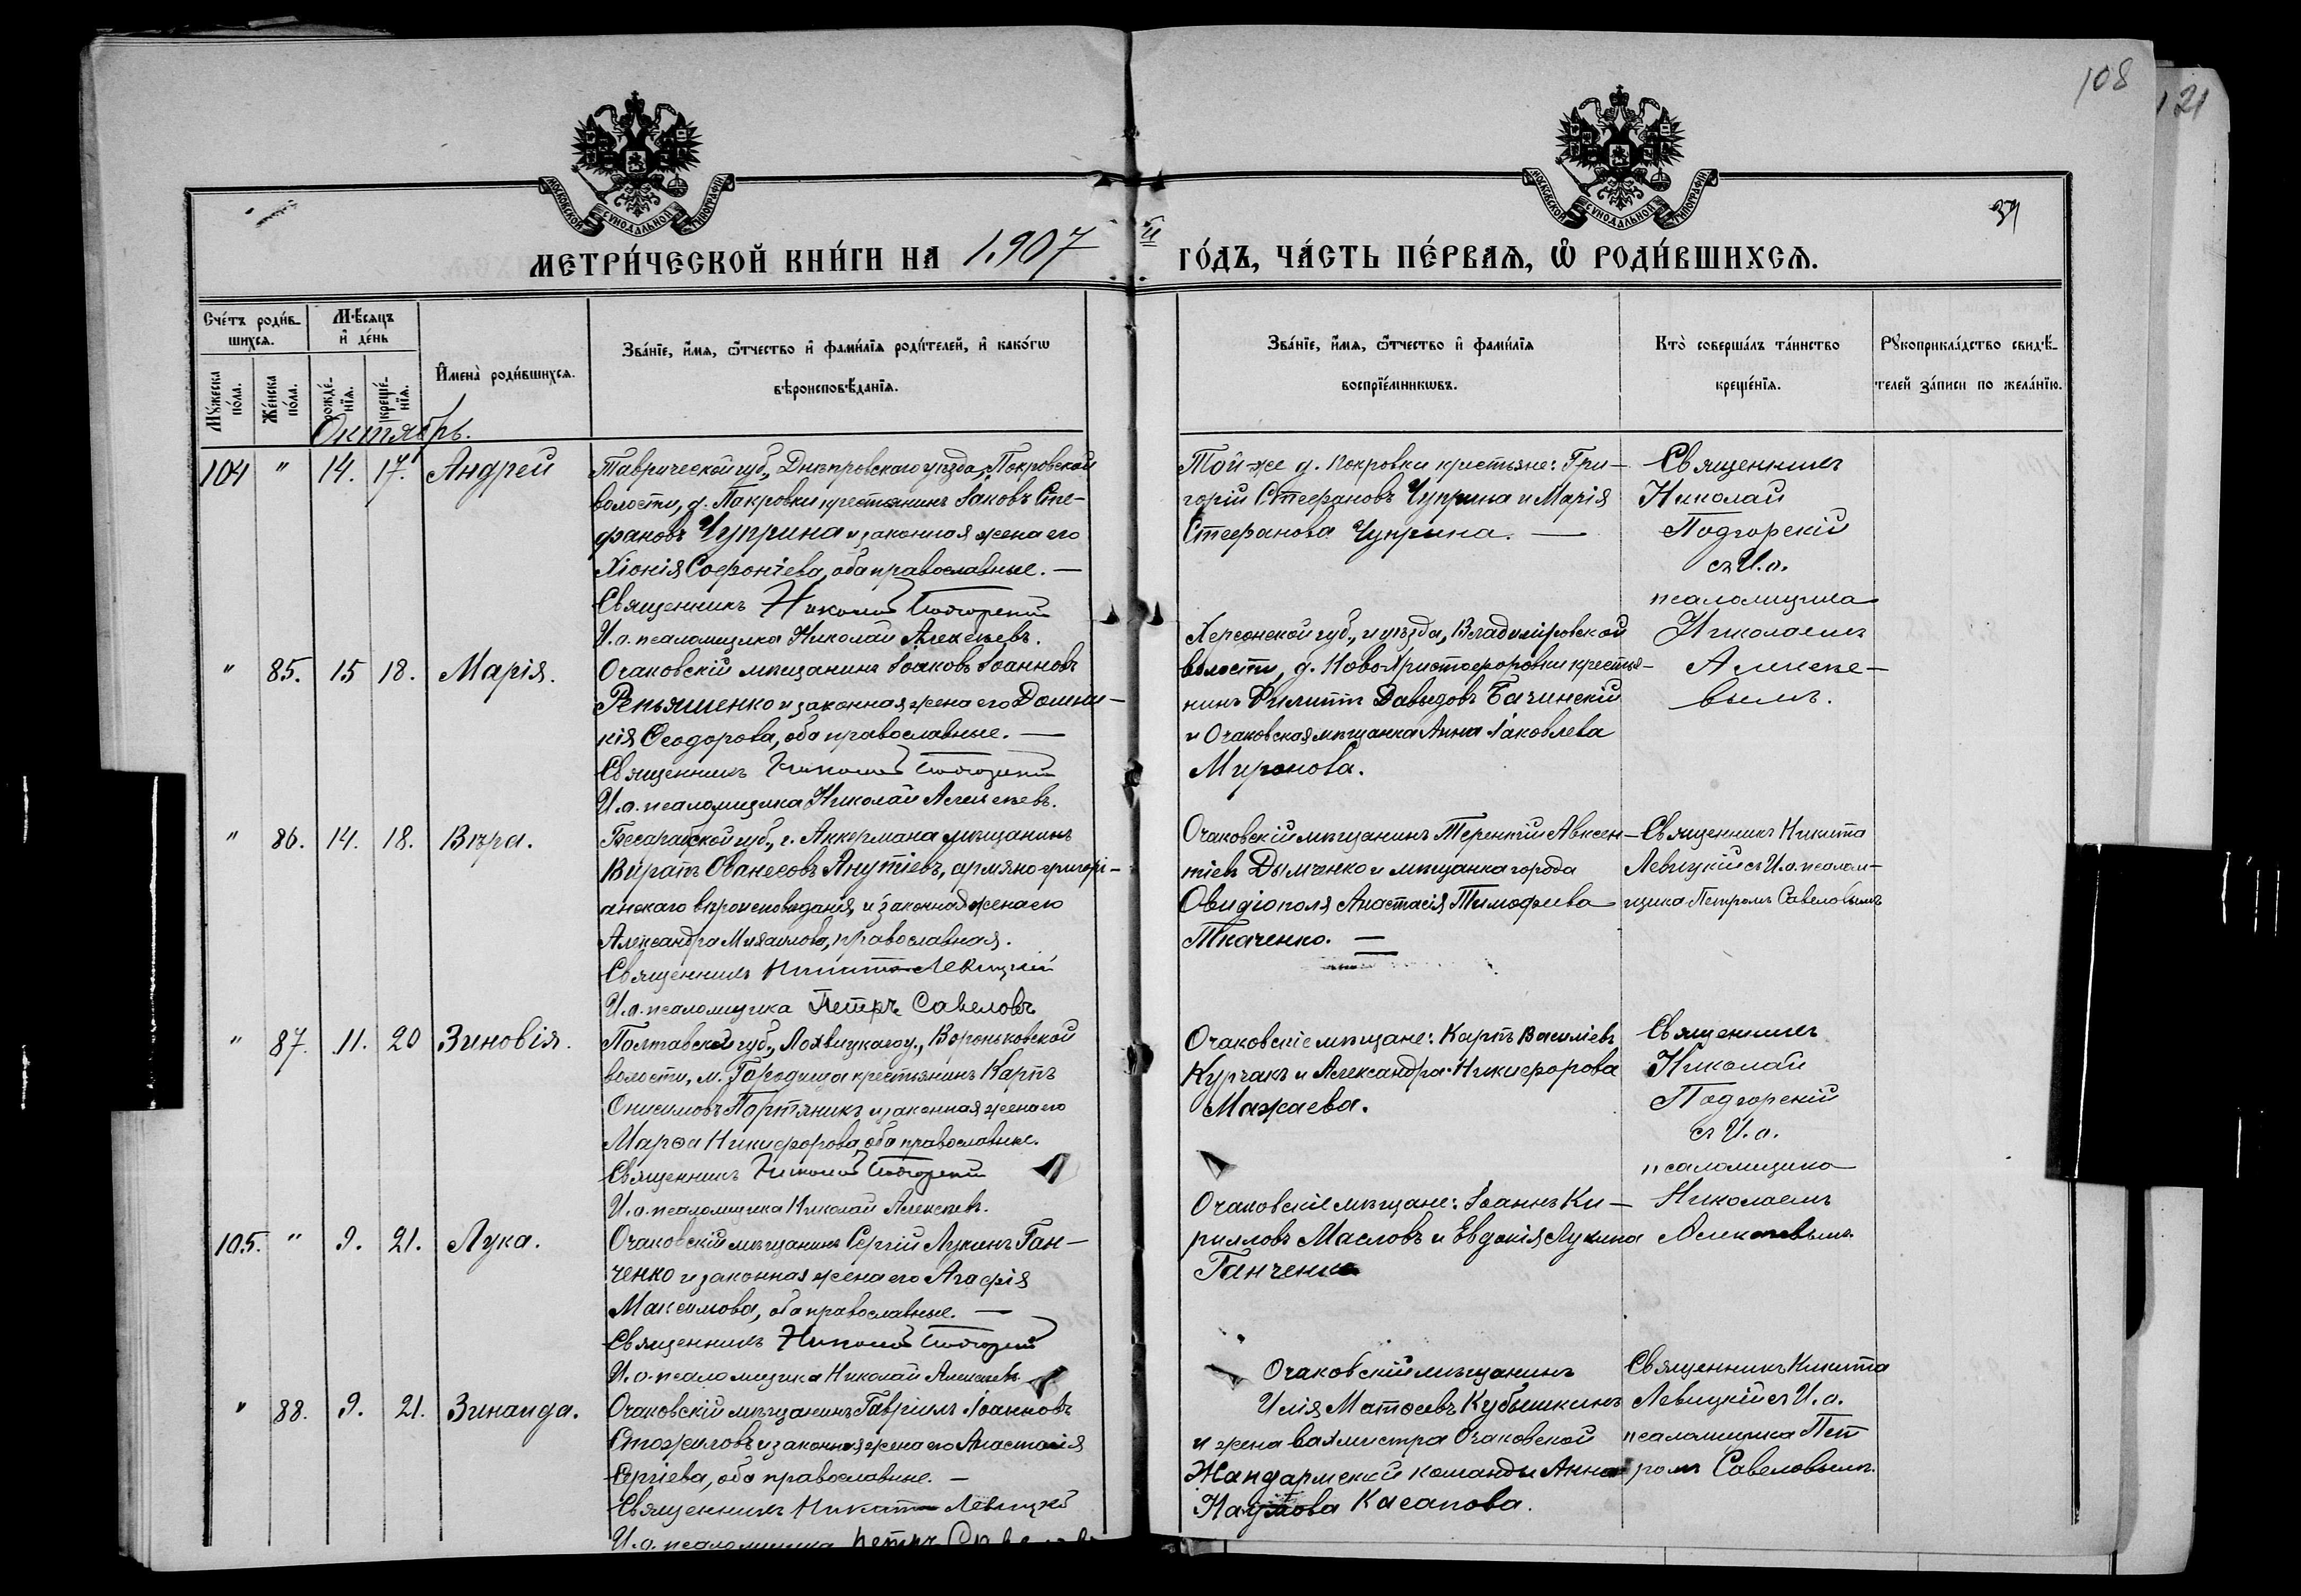 108
121
МОСКОВСКОЙ СѴНОДАЛЬНОЙ ТИПОГРАФІИ
МОСКОВСКОЙ СѴНОДАЛЬНОЙ ТИПОГРАФІИ
39
МЕТРИ́ЧЕСКОЙ КНИ́ГИ НА 1907 й ГО́ДЪ, ЧА́СТЬ ПЕ́РВАѦ, Ѡ҆ РОДИ́ВШИХСѦ.
Сче́тъ роди́вшихсѧ.
Мѣ́сѧцъ и҆ де́нь
Мꙋ́жеска по́ла.
Же́нска по́ла.
рожде́нїѧ.
креще́нїѧ.
И҆мена̀ роди́вшихсѧ.
Зва́нїе, и҆́мѧ, ѻ҆́тчество и҆ фами́лїѧ роди́телей, и҆ како́гѡ
вѣроисповѣ́данїѧ.
Зва́нїе, и҆́мѧ, ѻ҆́тчество и҆ фами́лїѧ
воспрїе́мникѡвъ.
Кто̀ соверша́лъ та́инство
креще́нїѧ.
Рꙋкоприкла́дство свидѣ́-
телей за́писи по жела́нїю.
Октябрь.
104 " 14. 17. Андрей
Таврической губ., Днѣпровскаго уѣзда, Покровской
волости, д. Покровки крестьянинъ Іаковъ Сте-
фановъ Чуприна и законная жена его
Хіонія Софоніева, оба православные. —
Священникъ Николай Подгорскій
И. о. псаломщика Николай Алексѣевъ.
Той-же д. Покровки крестьяне: Гри-
горій Стефановъ Чуприна и Марія
Стефанова Чуприна. —
Священникъ
Николай
Подгорскій
съ И. о.
псаломщика
Николаемъ
Алексѣе-
вымъ.
" 85. 15 18. Марія.
Очаковскій мѣщанинъ Іоаковъ Іоанновъ
Репьяшенко и законная жена его Домни-
кія Ѳеодорова, оба православные. —
Священникъ Николай Подгорскій
И. о. псаломщика Николай Алексѣевъ.
Херсонской губ., и уѣзда, Владиміровской
волости, д. Ново-Христофоровки крестья-
нинъ Филиппъ Давидовъ Бачинскій
и Очаковская мѣщанка Анна Іаковлева
Миронова.
" 86. 14. 18. Вѣра.
Бессарабской губ., г. Аккермана мѣщанинъ
Вираπъ Ованесовъ Анутіевъ, армяно-григорі-
анскаго вѣроисповѣданія, и законная жена его
Александра Михаилова, православная.
Священникъ Никита Левицкій
И. о. псаломщика Петръ Савеловъ
Очаковскій мѣщанинъ Терентій Авксен-
тіевъ Дымченко и мѣщанка города
Овидіополя Анастасія Тимофѣева
Ткаченко. —
Священникъ Никита
Левицкій съ И. о. псалом-
щика Петромъ Савеловымъ
" 87. 11. 20 Зиновія.
Полтавской губ., Лохвицкаго у., Вороньковской
волости, м. Городища крестьянинъ Карпъ
Онисимовъ Портяникъ и законная жена его
Марѳа Никифорова, оба православные.
Священникъ Николай Подгорскій
И. о. псаломщика Николай Алексѣевъ.
Очаковскіе мѣщане: Карпъ Василіевъ
Курчакъ и Александра Никифорова
Мажаева.
Священникъ
Николай
Подгорскій
съ И. о.
псаломщика
Николаемъ
Алексѣевымъ
105. " 9. 21. Лука.
Очаковскій мѣщанинъ Сергій Лукинъ Ган-
ченко и законная жена его Агафія
Максимова, оба православные. —
Священникъ Николай Подгорскій
И. о. псаломщика Николай Алексѣевъ
Очаковскіе мѣщане: Іоаннъ Ки-
рилловъ Масловъ и Евдокія Лукина
Ганченко
" 88. 9. 21. Зинаида.
Очаковскій мѣщанинъ Гавріилъ Іоанновъ
Стожиловъ и законная жена его Анастасія
Сергіева, оба православные. —
Священникъ Никита Левицкій
И. о. псаломщика Петръ Савеловъ
Очаковскій мѣщанинъ
Илія Матѳеевъ Кубышкинъ
и жена вахмистра Очаковской
Жандармской команды Анна
Наумова Касапова.
Священникъ Никита
Левицкій съ И. о.
псаломщика Пет
ромъ Савеловымъ.